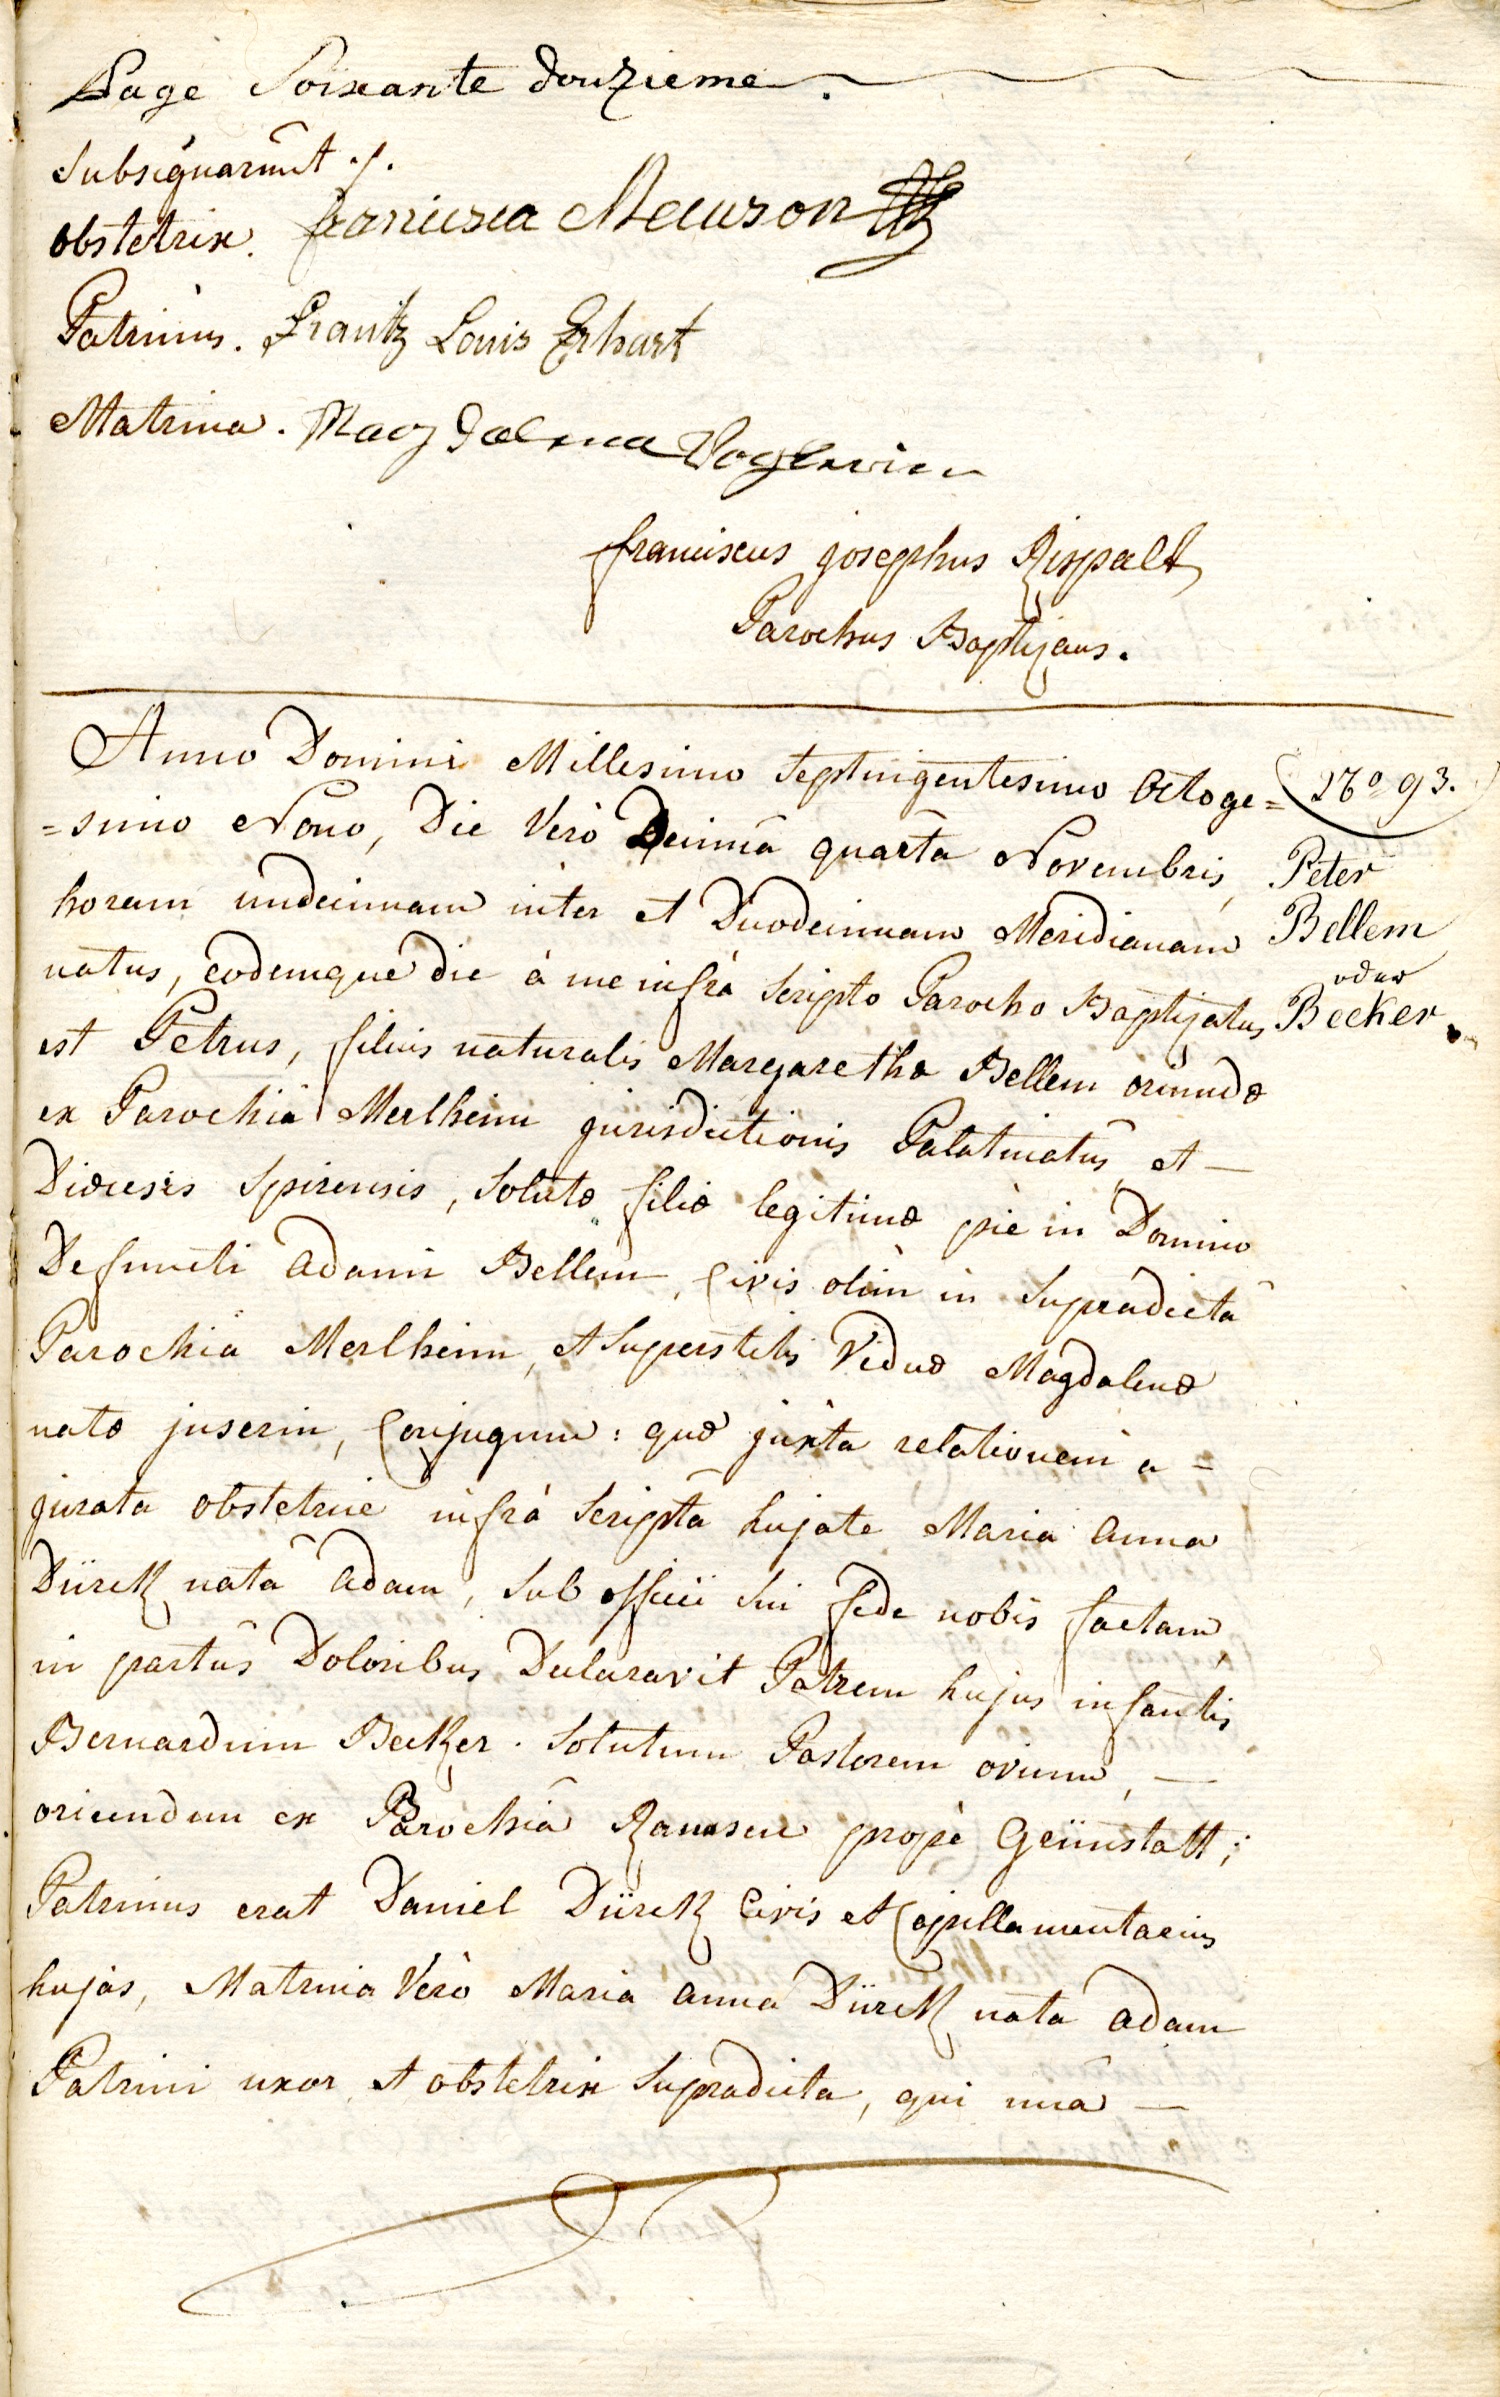 Page Soixante douzieme.
Subsignarunt ./.
obstetrix. Mauson
Patrinus. Frantz Louis Erhart
Matrina. Magdalena Voglerien
franciscus josephus Rispalt
Parochus Baptizans.
Anno Domini Millesimo Septingentesimo Octoge=
=simo Nono, Die Verò Decimâ quartâ Novembris,
horam undecimam inter et Duodecimam Meridianam
natus, eodemque die à me infrà Scripto Parocho Baptizatus
est Petrus, filius naturalis Margarethæ Bellem oriundæ
ex Parochiâ Merlheim jurisdictionis Palatinatûs et —
Diœcesis Spirensis, Solutæ filiæ legitimæ piè in Domino
Defuncti Adami Bellem, Civis olim in Supradictâ
Parochiâ Merlheim, et Superstitis Viduæ Magdalenæ
natæ juserin, Conjugum: quæ juxta relationem a-
jurata obstetrice infrà Scriptâ hujate Maria Anna
Dürck natâ Adam, Sub officii sui fide nobis factam,
in partûs Doloribus Declaravit Patrem hujus infantis
Bernardum Becker. Solutum Pastorem ovium, —
oriundum ex Parochiâ Ramsen propè Grünstatt;
Patrinus erat Daniel Dürck Civis et Capillamentarius
hujas, Matrina Verò Maria Anna Dürck nata Adam
Patrini uxor et obstetrix Supradicta, qui unà —
No 93.
Peter
Bellem
oder
Becker.